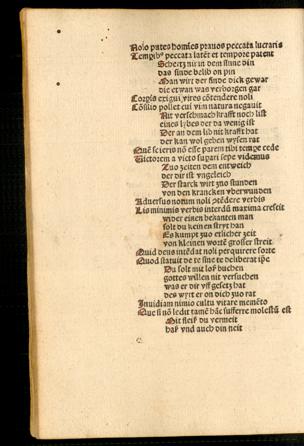 Nolo putes homīes prauos peccata lucraris
Tempib⁹ peccata latēt et tempore patent
Scheitz nit in dem sinne din
das sinde belib on pin
Man wirt der sinde dick gewar
die etwan was verborgen gar
Corpis exigui vires cōtendere noli
Cōsilio pollet cui vim natura negauit
Nit verschmach krafft noch list
eines lybes der da wenig ist
Der an dem lid nit krafft hat
der kan wol geben wysen rat
Quē scieris nō esse parem tibi tempe cede
Victorem a victo supari sepe videmus
Zuo zeiten dem entweich
der dir ist vngeleich
Der starck wirt zuo stunden
von den krancken vberwunden
Aduersus notum noli ꝯtēdere verbis
Lis minimis verbis interdū maxima crescit
wider einen bekanten man
solt du keinen stryt han
Es kumpt zuo etlicher zeit
von kleinen wortē grosser streit
Quid deus intēdat noli perquirere sorte
Quod statuit de te sine te deliberat ip̄e
Du solt mit loß buchen
gottes willen nit versuchen
was er dir vff gesetzt hat
des wyrt er on dich zuo rat
Inuidiam nimio cultu vitare memēto
Que si nō ledit tamē hāc sufferre molestū est
Mit fleiß du vermeit
haß vnd auch din neit